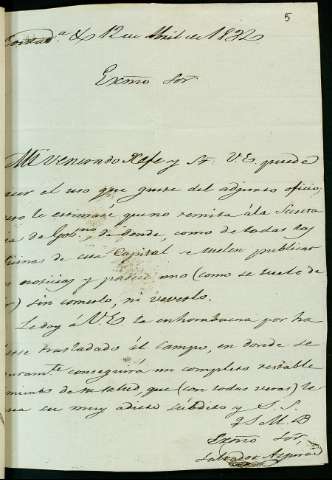 5
12 de Abril de 1832
Exmo Sor
Mi venerado Xefe y Sr. V.E. puede
hacer el uso que guste del adjunto oficio,
pero le estimaré que no remita á la Secreta
ria de Gobno, de donde, como de todas las
oficinas de esa Capital se suelen publicar
las noticias y padece uno (como se suele de
cir) sin comerlo, ni beberlo.
Le doy á V.E. la enhorabuena por ha
verse trasladado al campo, en donde se
guramte conseguirá un completo restable
cimiento de su salud, que (con todas veras) le
desea su muy adicto súbdito y S. S.
Q S M B
Exmo Sor,
Salvador